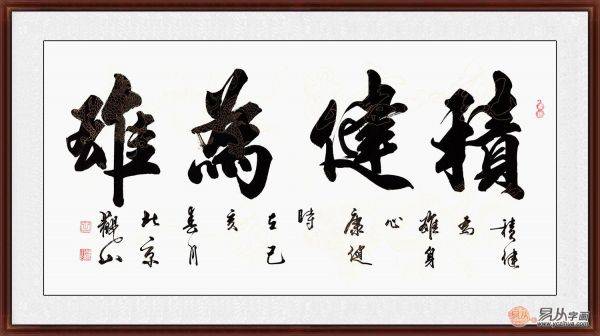 積健為雄
積健
為
雄身
心
康健
時
在己
亥
春月
北京
觀山
易从字画
www.yczihua.com